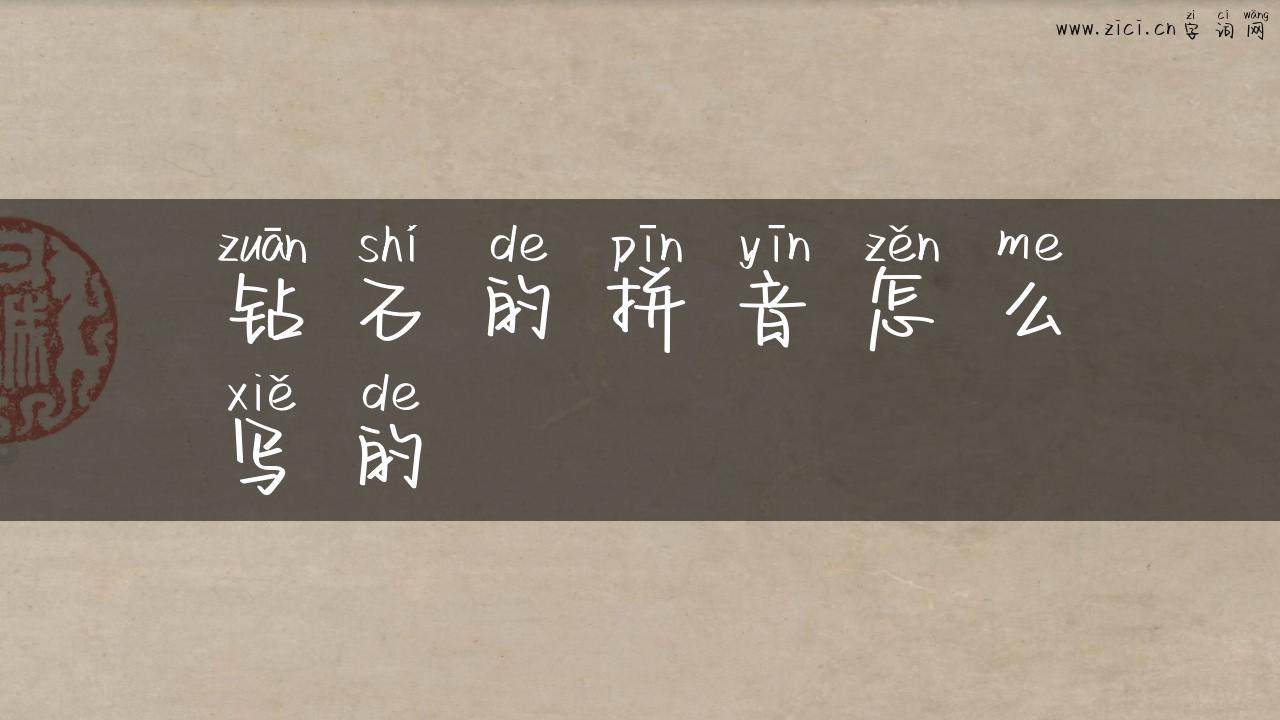 zì cí wǎng
www.zici.cn 字词网
zuān shí de pīn yīn zěn me
钻石的拼音怎么
xiě de
写的